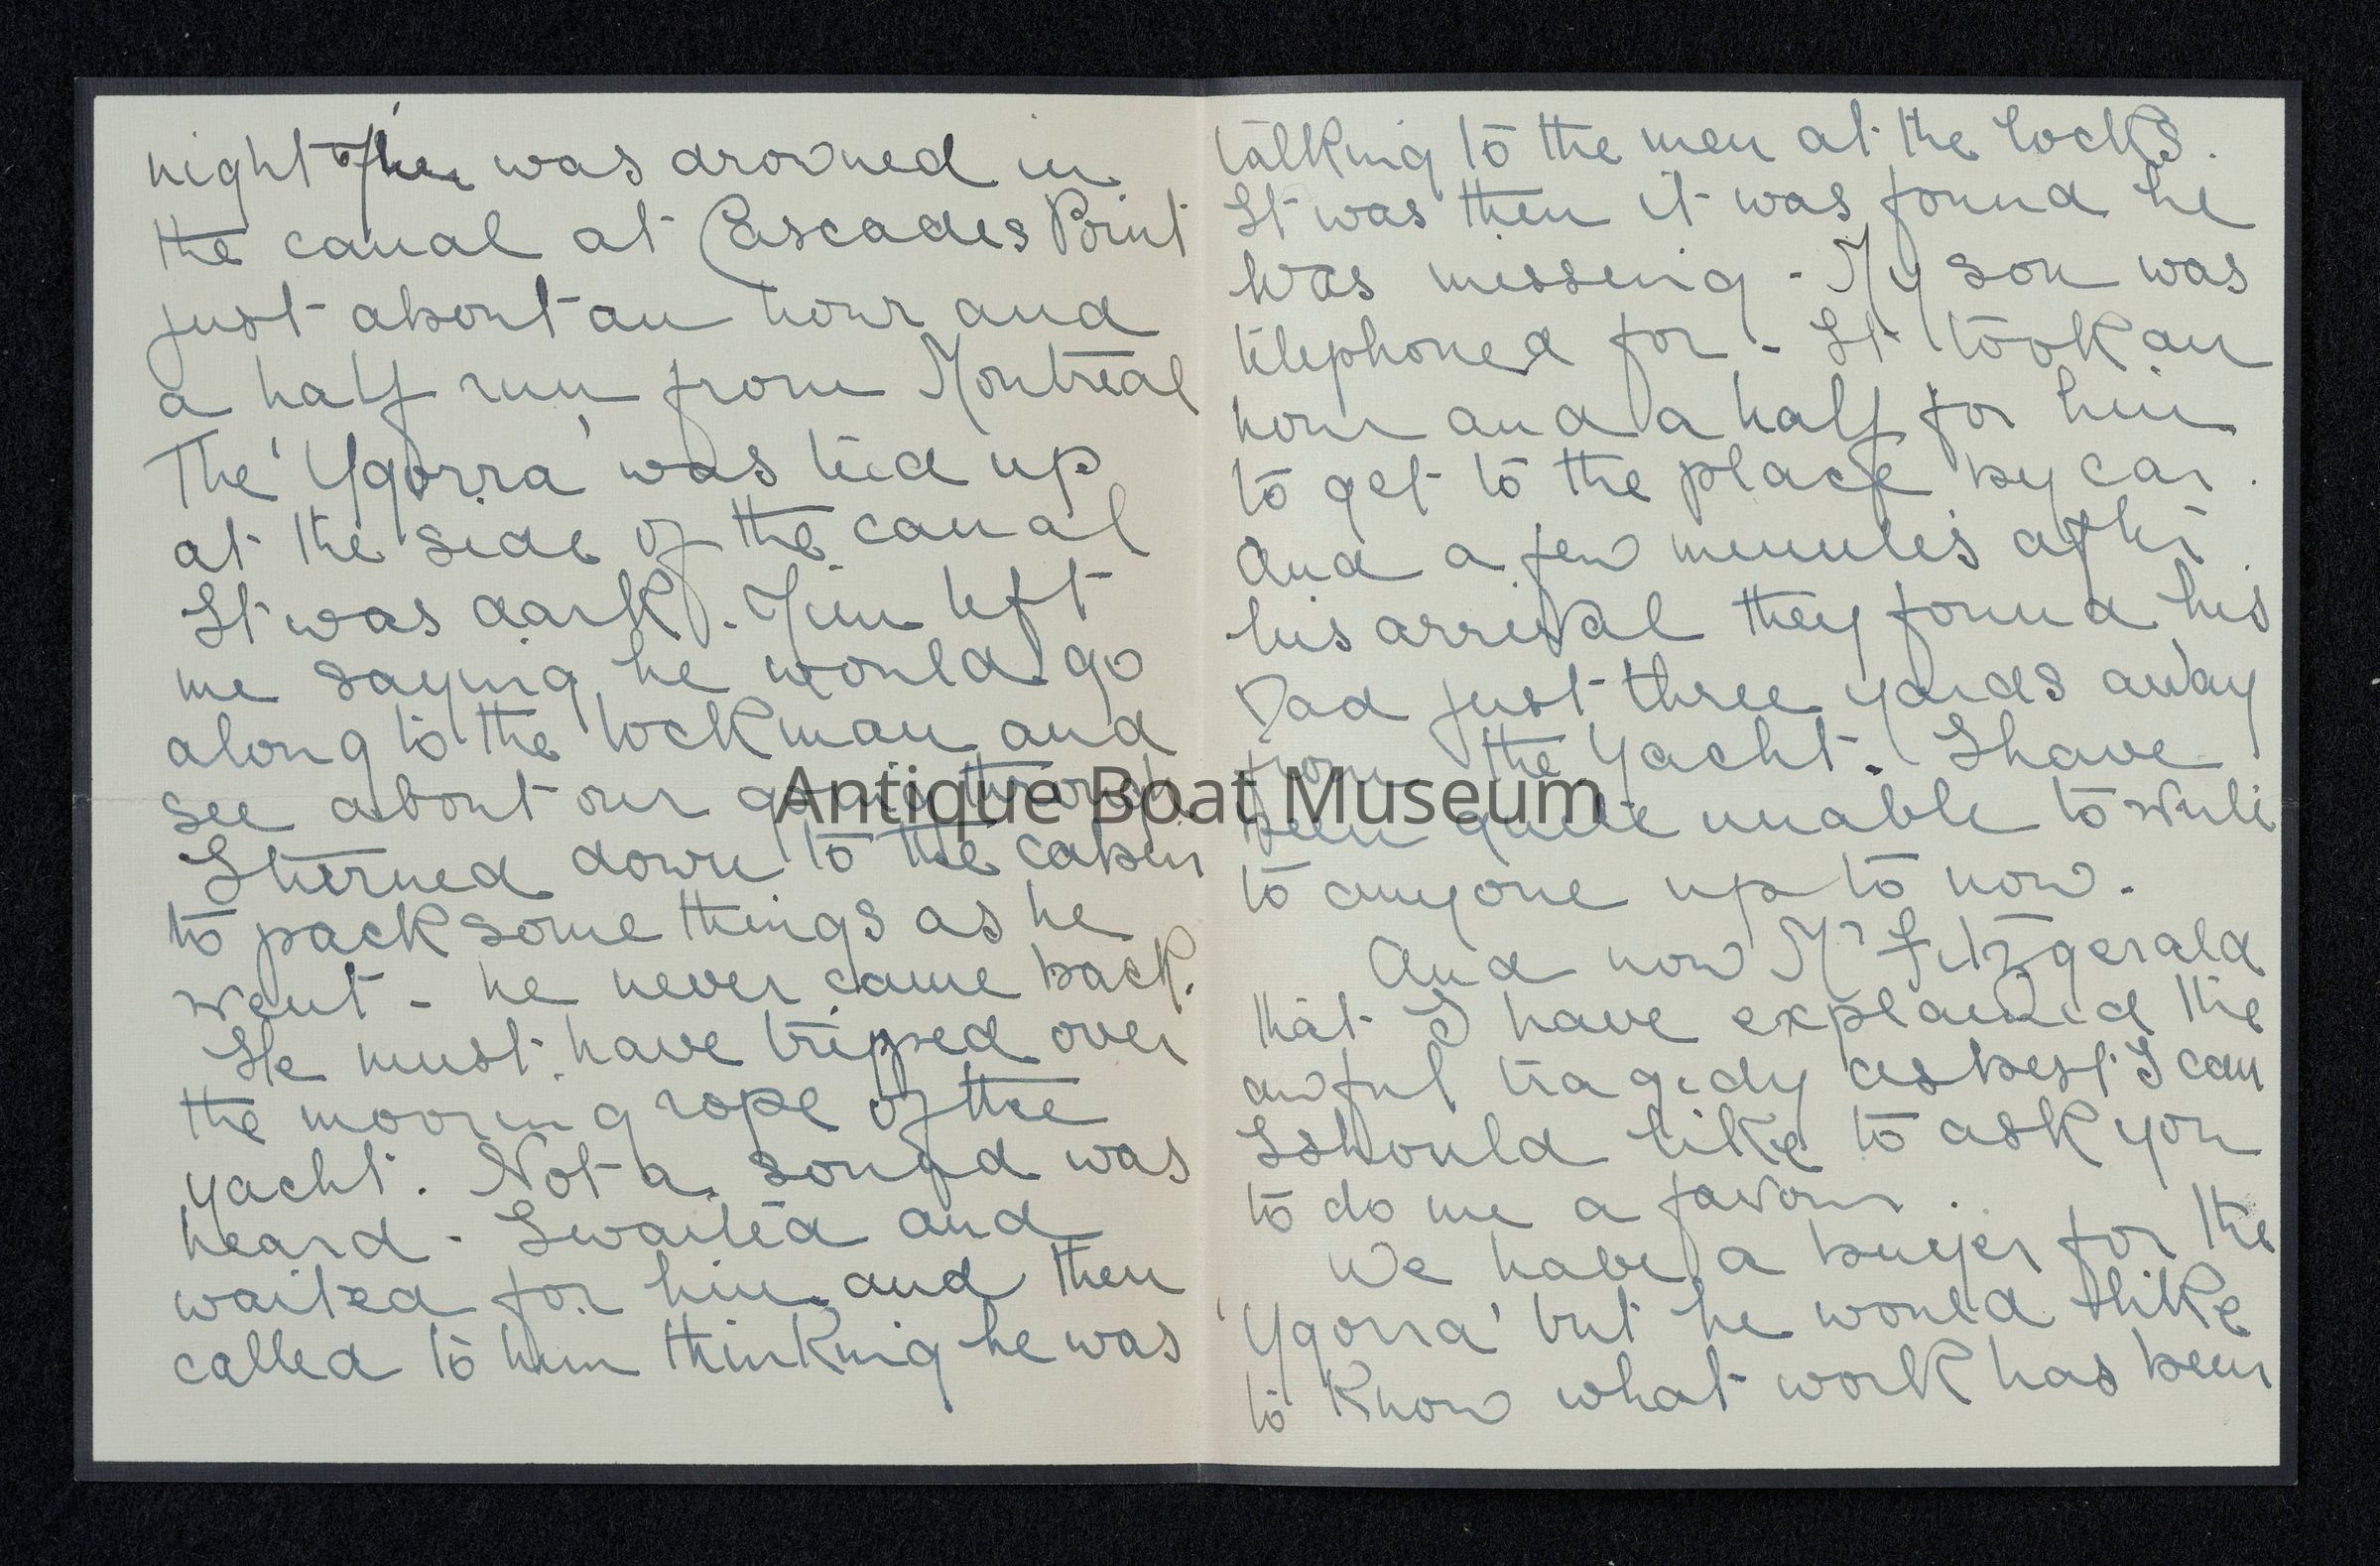 night Jim was drowned in
the canal at Cascades Point
just about an hour and
a half run from Montreal
The 'Ygorra' was tied up
at the side of the canal
It was dark. Jim left
me saying he would go
along to the lockman and
see about our going through
I turned down to the cabin
to pack some things as he
went - he never came back.
He must have tripped over
the mooring rope of the
yacht. Not a sound was
heard - I waited and
waited for him and then
called to him thinking he was
talking to the men at the locks.
It was then it was found he
was missing - My son was
telephoned for - It took an
hour and a half for him
to get to the place by car.
And a few minutes after
his arrival they found his
Dad just three yards away
from the Yacht. I have
been quite unable to write
to anyone up to now.
And now Mr Fitzgerald
that I have explained the
awful tragedy as best I can
I should like to ask you
to do me a favour.
We have a buyer for the
'Ygorra' but he would like
to know what work has been
Antique Boat Museum